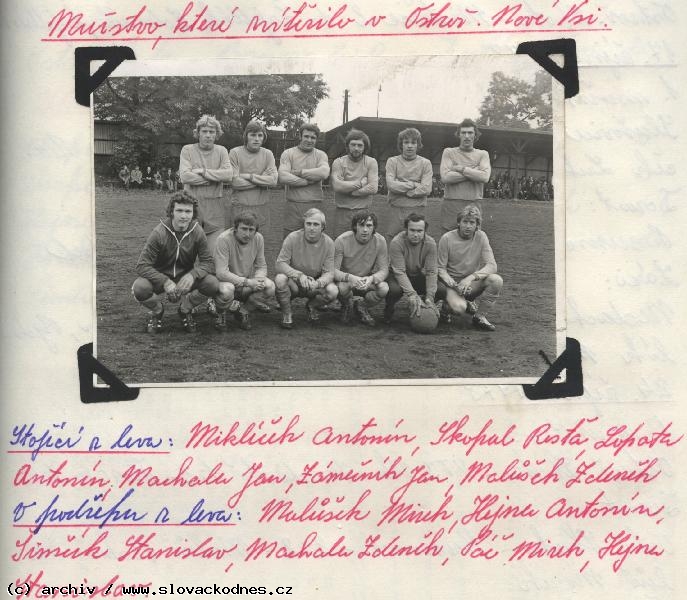 Mužstvo, které vítězilo v Ostrož. Nové Vsi.
Stojící z leva: Miklíček Antonín, Skopal Rosťa, Lopata
Antonín, Machala Jan, Zámečník Jan, Malůšek Zdeněk
V podřepu z leva: Malůšek Mirek, Hejna Antonín,
Šimčík Stanislav, Machala Zdeněk, Páč Mirek, Hejna
Stanislav
(c) archiv / www.slovackodnes.cz